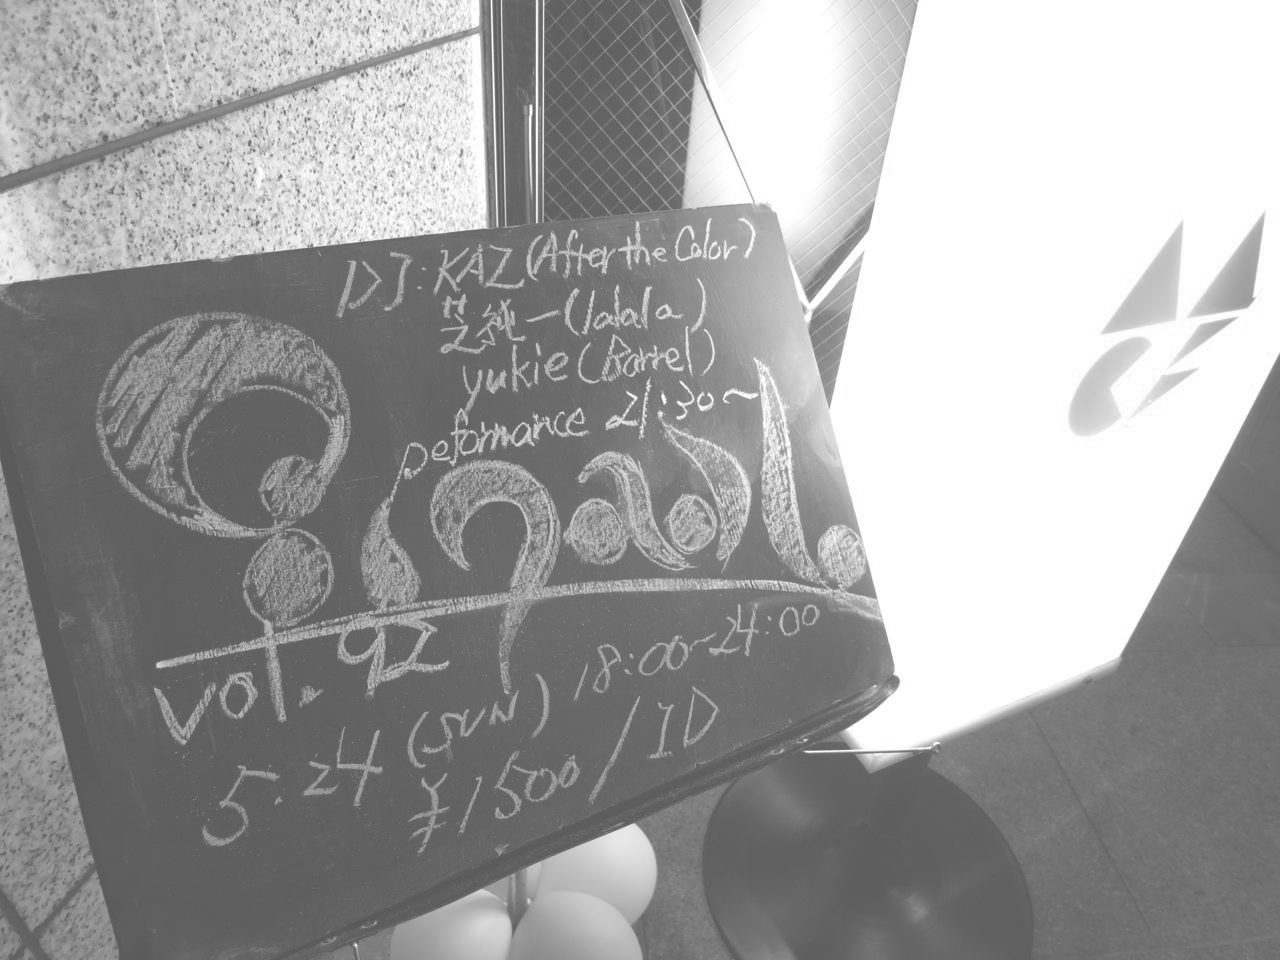 DJ: KAZ (After the Color)
芝純一 (lalala)
yukie (Barrel)
pefomance 21:30~
vol. 92
5.24 (SUN) 18:00~24:00
¥1500 / 1D